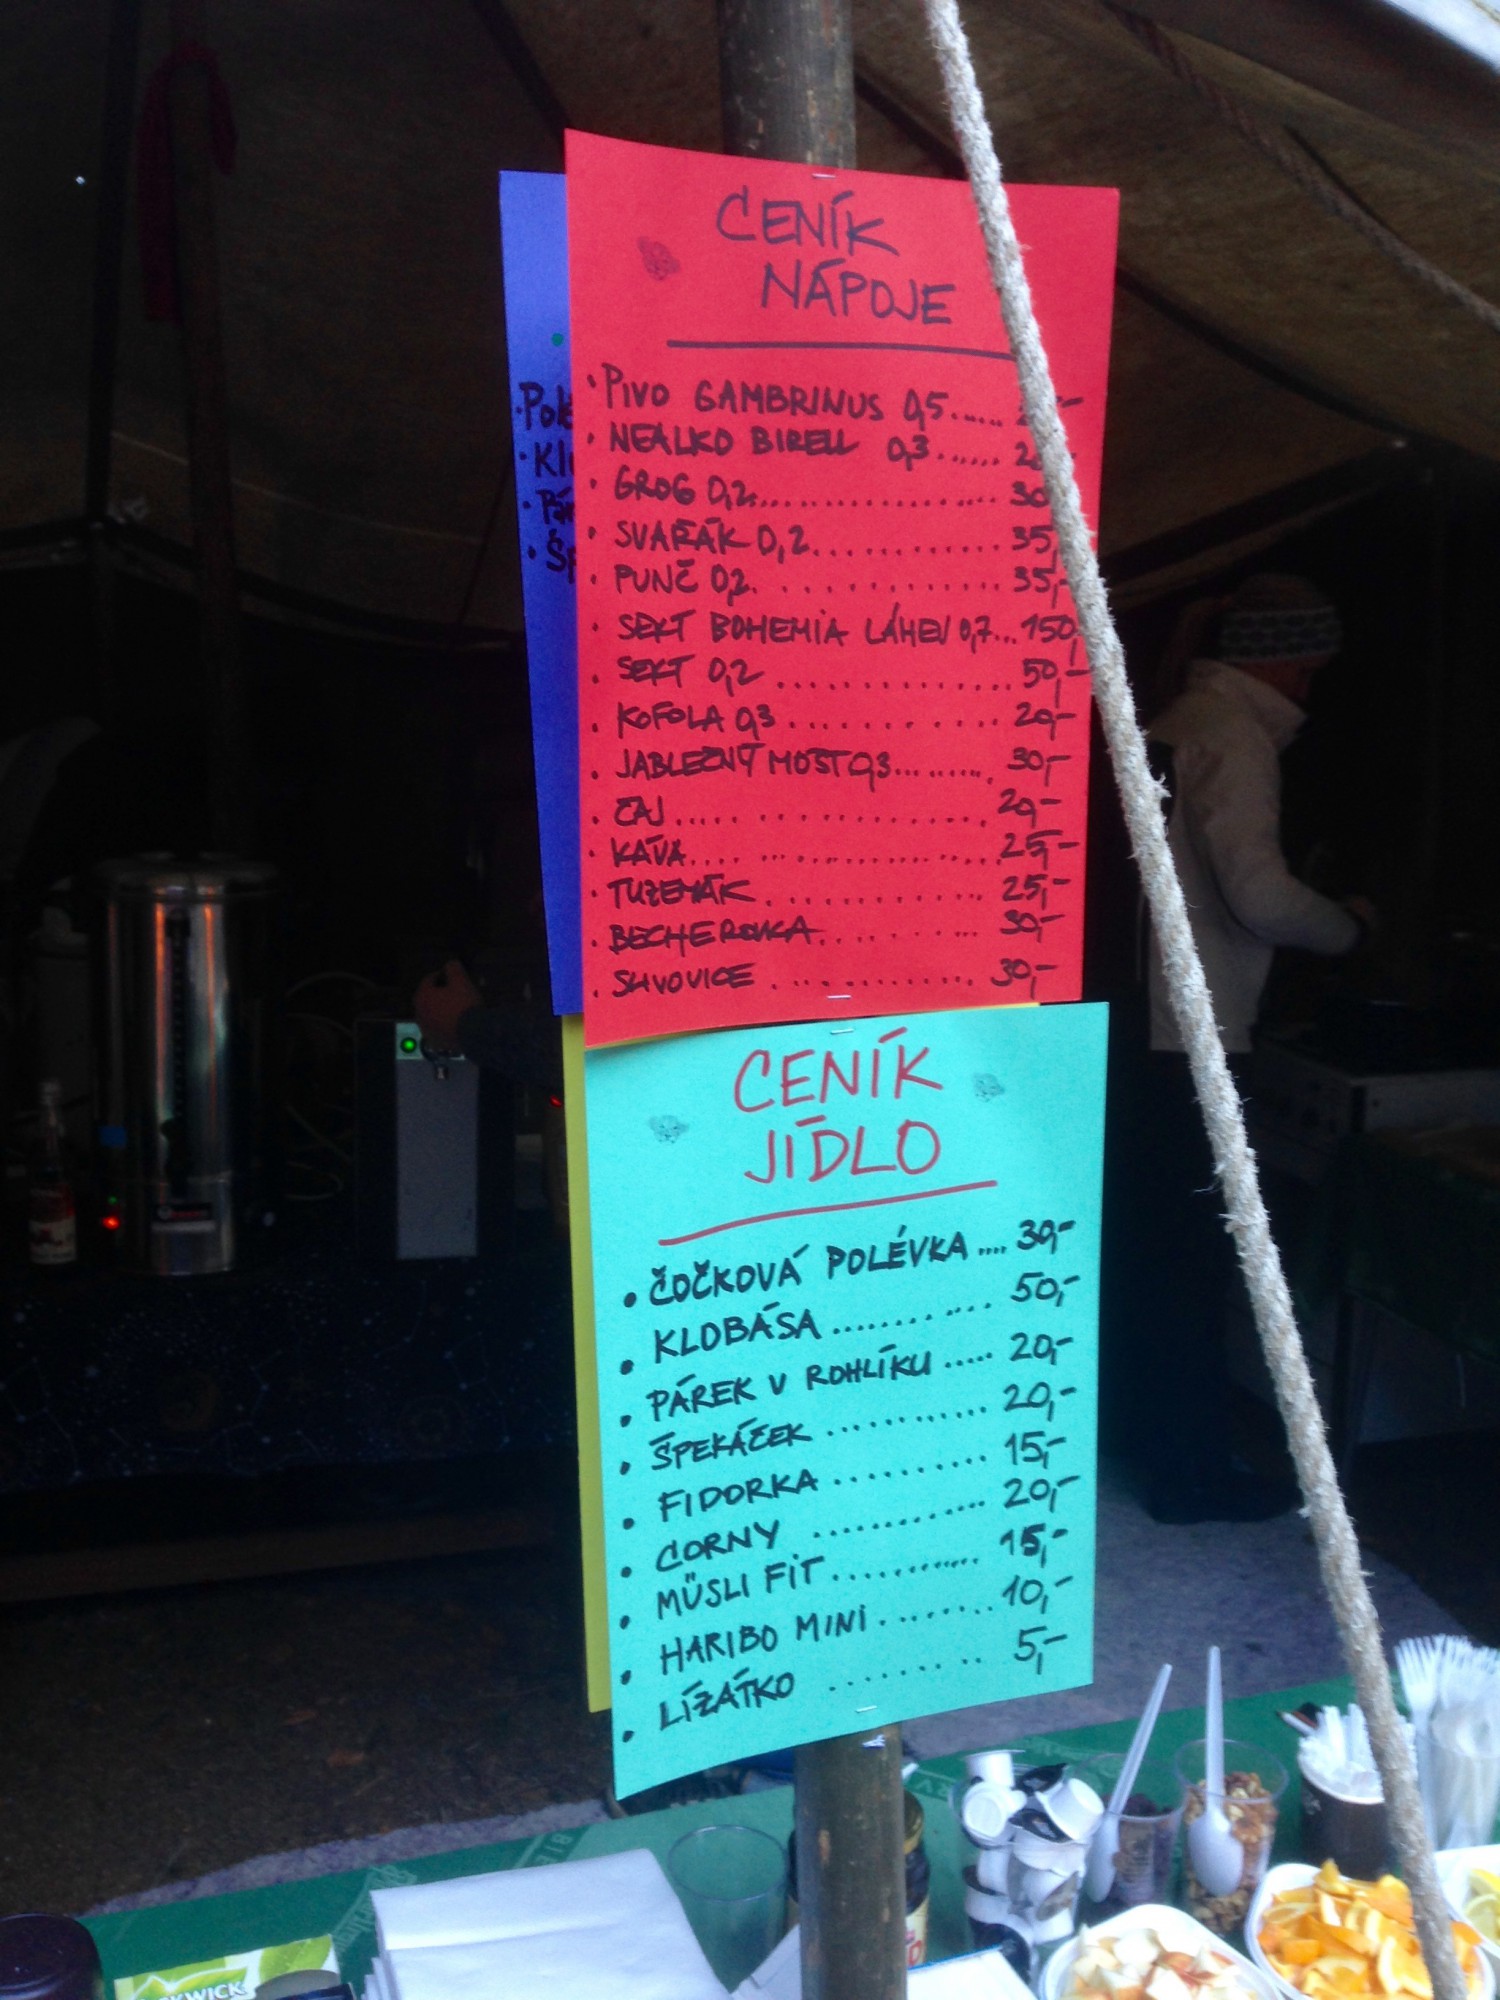 CENÍK
NÁPOJE
• PIVO GAMBRINUS 0,5......
• NEALKO BIRELL 0,3......
• GROG 0,2................. 30
• SVAŘÁK 0,2............ 35,
• PUNČ 0,2............. 35,-
• SEKT BOHEMIA LÁHEV 0,7... 150,
• SEKT 0,2 .............. 50,-
• KOFOLA 0,3........... 20,-
• JABLEČNÝ MOŠT 0,3......... 30,-
• ČAJ.................. 20,-
• KÁVA.................. 25,-
• TUZEMÁK............. 25,-
• BECHEROVKA.......... 30,-
• SLIVOVICE............ 30,-
CENÍK
JÍDLO
• ČOČKOVÁ POLÉVKA .... 30,-
• KLOBÁSA ............ 50,-
• PÁREK V ROHLÍKU ..... 20,-
• ŠPEKÁČEK ............. 20,-
• FIDORKA ............ 15,-
• CORNY ............. 20,-
• MÜSLI FIT ............ 15,-
• HARIBO MINI ......... 10,-
• LÍZÁTKO .......... 5,-